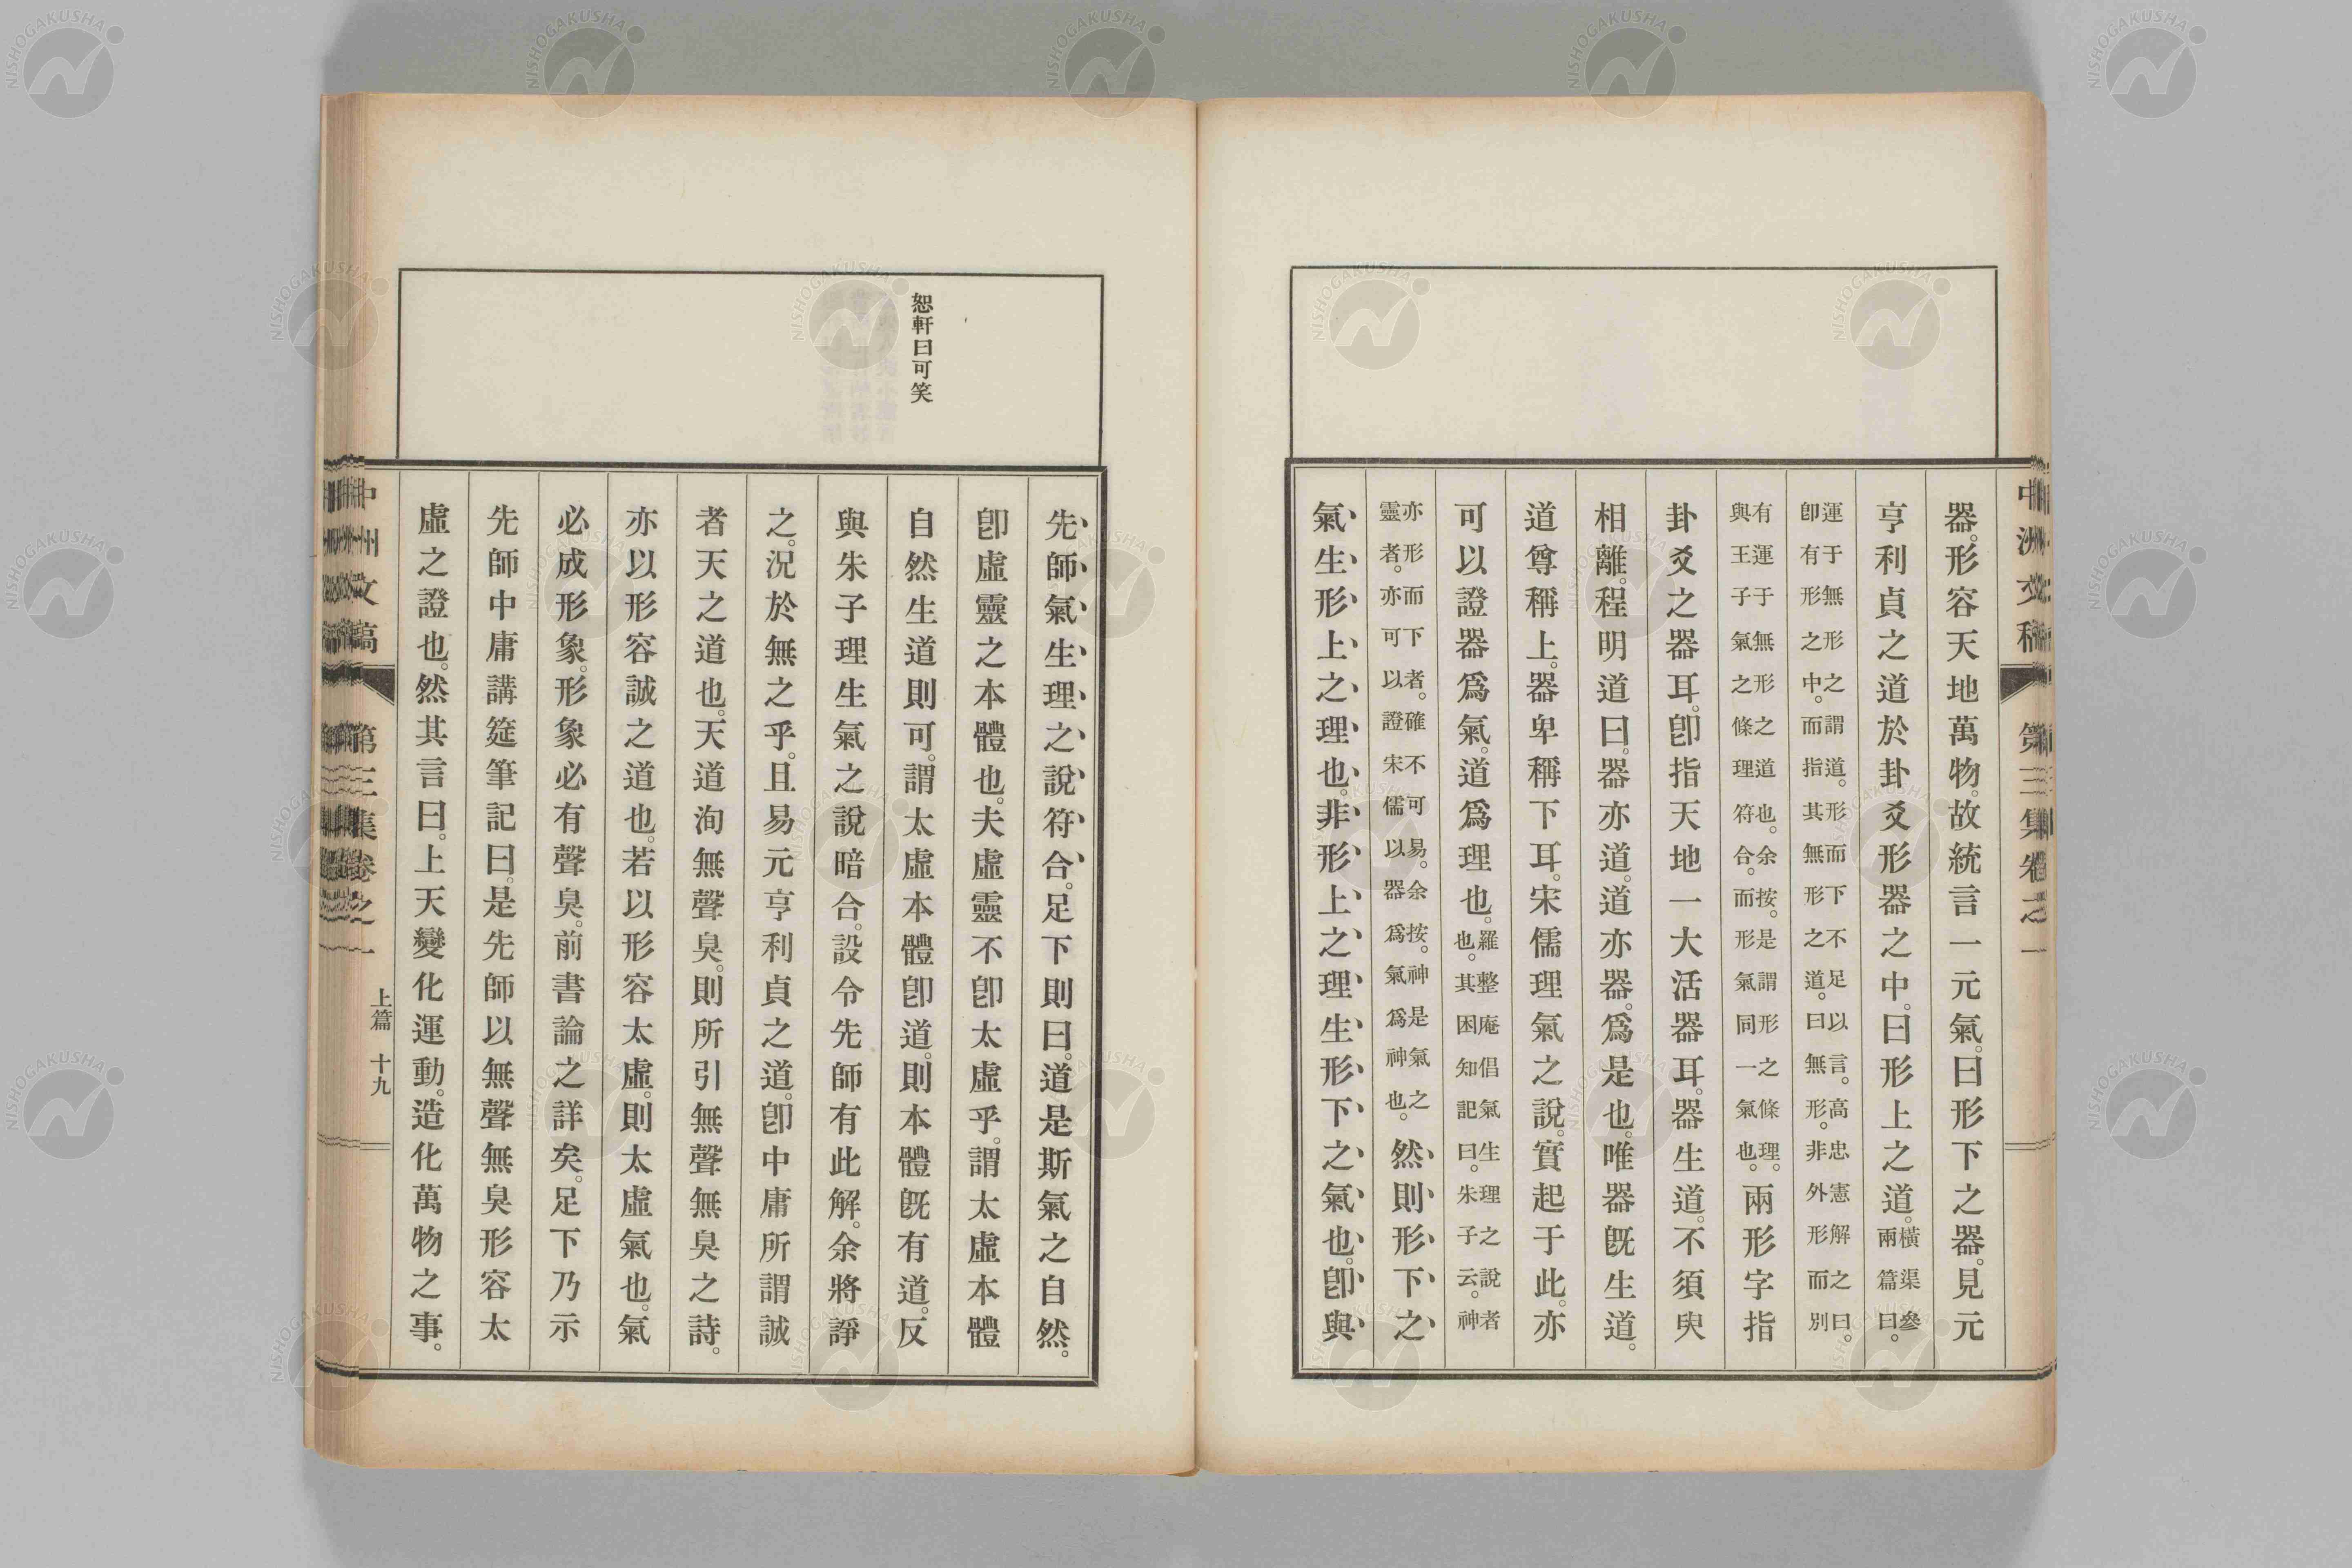 中洲文稿 第三集卷之一
器。形容天地萬物。故統言一元氣。曰形下之器。見元
亨利貞之道於卦爻形器之中。曰形上之道。橫渠參
兩篇曰。
運于無形之謂道。形而下不足以言。高忠憲解之曰。
卽有形之中。而指其無形之道。曰無形。非外形而別
有運于無形之道也。余按。是謂形之條理。
與王子氣之條理符合。而形氣同一氣也。兩形字指
卦爻之器耳。卽指天地一大活器耳。器生道。不須臾
相離。程明道曰。器亦道。道亦器。爲是也。唯器既生道。
道尊稱上。器卑稱下耳。宋儒理氣之說。實起于此。亦
可以證器爲氣。道爲理也。羅整庵倡氣生理之說者
也。其困知記曰。朱子云。神
亦形而下者。確不可易。余按。神是氣之
靈者。亦可以證宋儒以器爲氣爲神也。然則形下之
氣生形上之理也。非形上之理生形下之氣也。卽與
先師氣生理之說符合。足下則曰。道是斯氣之自然。
卽虛靈之本體也。夫虛靈不卽太虛乎。謂太虛本體
恕軒曰可笑
自然生道則可。謂太虛本體卽道。則本體既有道。反
與朱子理生氣之說暗合。設令先師有此解。余將諍
之。況於無之乎。且易元亨利貞之道。卽中庸所謂誠
者天之道也。天道洵無聲臭。則所引無聲無臭之詩。
亦以形容誠之道也。若以形容太虛。則太虛氣也。氣
必成形象。形象必有聲臭。前書論之詳矣。足下乃示
先師中庸講筵筆記曰。是先師以無聲無臭形容太
虛之證也。然其言曰。上天變化運動。造化萬物之事。
中洲文稿 第三集卷之一 上篇 十九